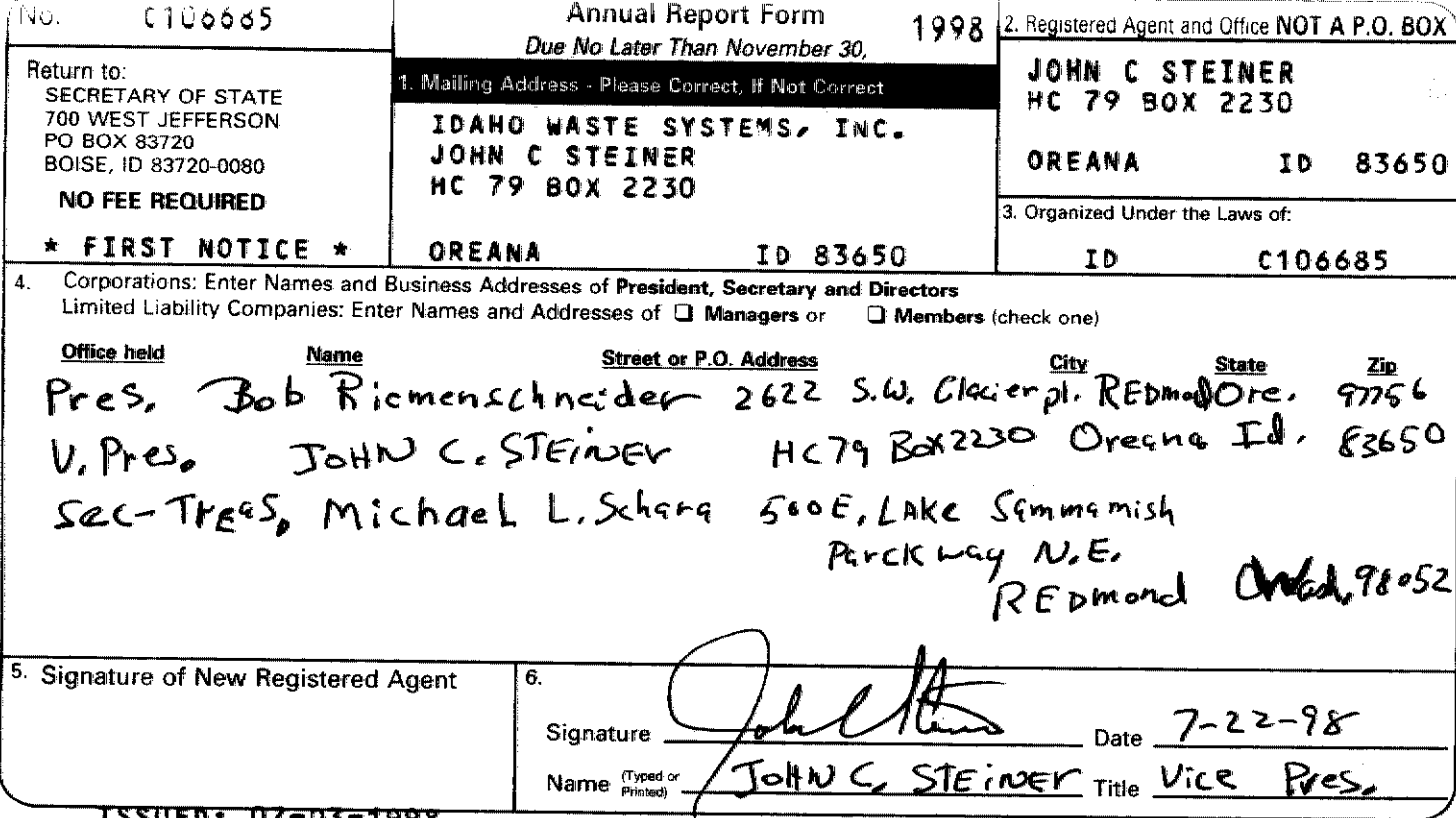 No. C106685
Annual Report Form 1998
Due No Later Than November 30,
Return to:
SECRETARY OF STATE
700 WEST JEFFERSON
PO BOX 83720
BOISE, ID 83720-0080
NO FEE REQUIRED
* FIRST NOTICE *
1. Mailing Address - Please Correct, If Not Correct
IDAHO WASTE SYSTEMS, INC.
JOHN C STEINER
HC 79 BOX 2230
OREANA ID 83650
2. Registered Agent and Office NOT A P.O. BOX
JOHN C STEINER
HC 79 BOX 2230
OREANA ID 83650
3. Organized Under the Laws of:
ID C106685
4. Corporations: Enter Names and Business Addresses of President, Secretary and Directors
Limited Liability Companies: Enter Names and Addresses of ❑ Managers or ❑ Members (check one)
Office held Name Street or P.O. Address City State Zip
Pres. Bob Riemenschneider 2622 S.W. Glacier pl. REDmod Ore. 97756
V. Pres. JOHN C. STEINER HC79 Box 2230 Oreana Id. 83650
Sec-Treas, Michael L. Schara 500 E, LAKE Sammamish
Parckway N.E.
REDmond Wash, 98052
5. Signature of New Registered Agent
6.
Signature John C Steiner Date 7-22-98
Name (Typed or Printed) JOHN C, STEINER Title Vice Pres.
ISSUED: 07-03-1998